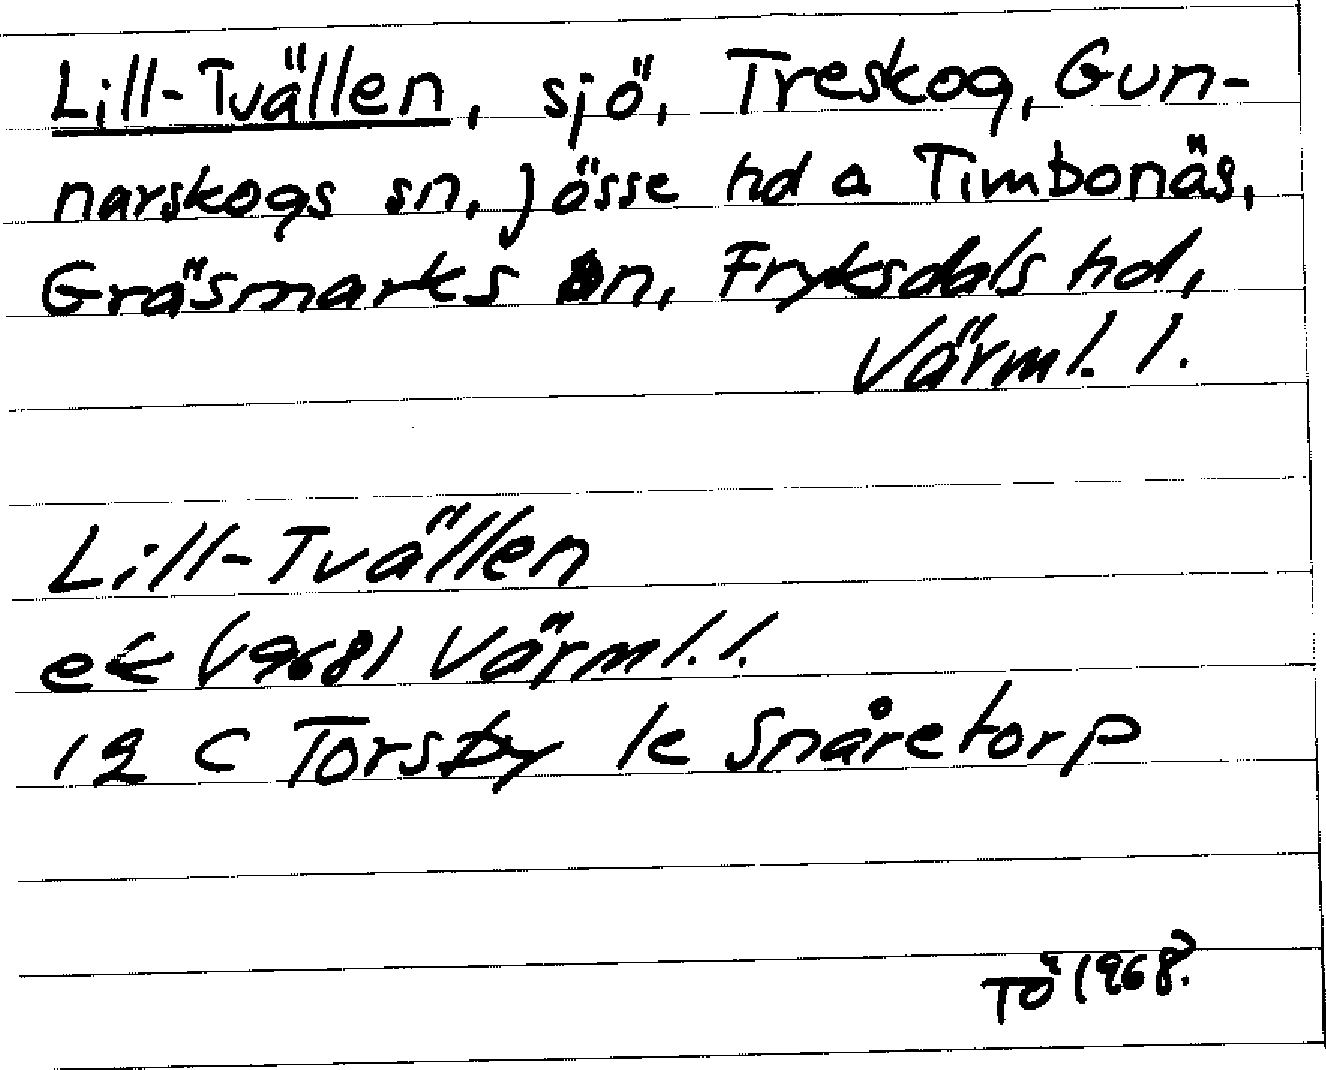 Lill-Tvällen, sjö, Treskog, Gun-
narskogs sn, Jösse hd a Timbonäs,
Gräsmarks sn, Fryksdals hd,
Värml. l.
Lill-Tvällen
ek (1968) Värml. l.
12 C Torsby 1c Snåretorp
TÖ 1968.